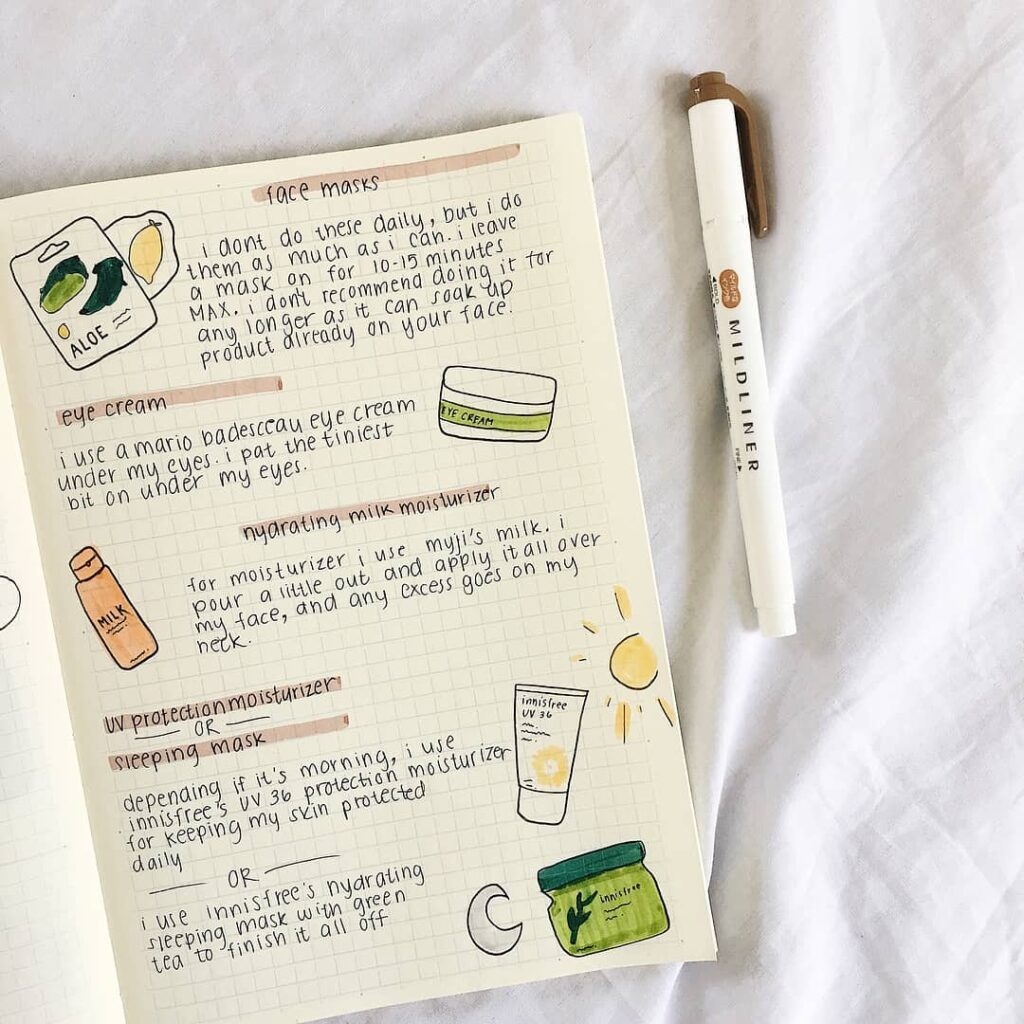 face masks
i dont do these daily, but i do
them as much as i can. i leave
a mask on for 10-15 minutes
MAX. i don't recommend doing it for
any longer as it can soak up
product already on your face.
ALOE
eye cream
i use a mario badesceau eye cream
under my eyes. i pat the tiniest
bit on under my eyes.
EYE CREAM
hydrating milk moisturizer
for moisturizer i use myji's milk. i
pour a little out and apply it all over
my face, and any excess goes on my
neck.
MILK
UV protection moisturizer
OR
sleeping mask
depending if it's morning, i use
innisfree's UV 36 protection moisturizer
for keeping my skin protected
daily
innisfree
UV 36
OR
i use innisfree's hydrating
sleeping mask with green
tea to finish it all off
innisfree
MILDLINER